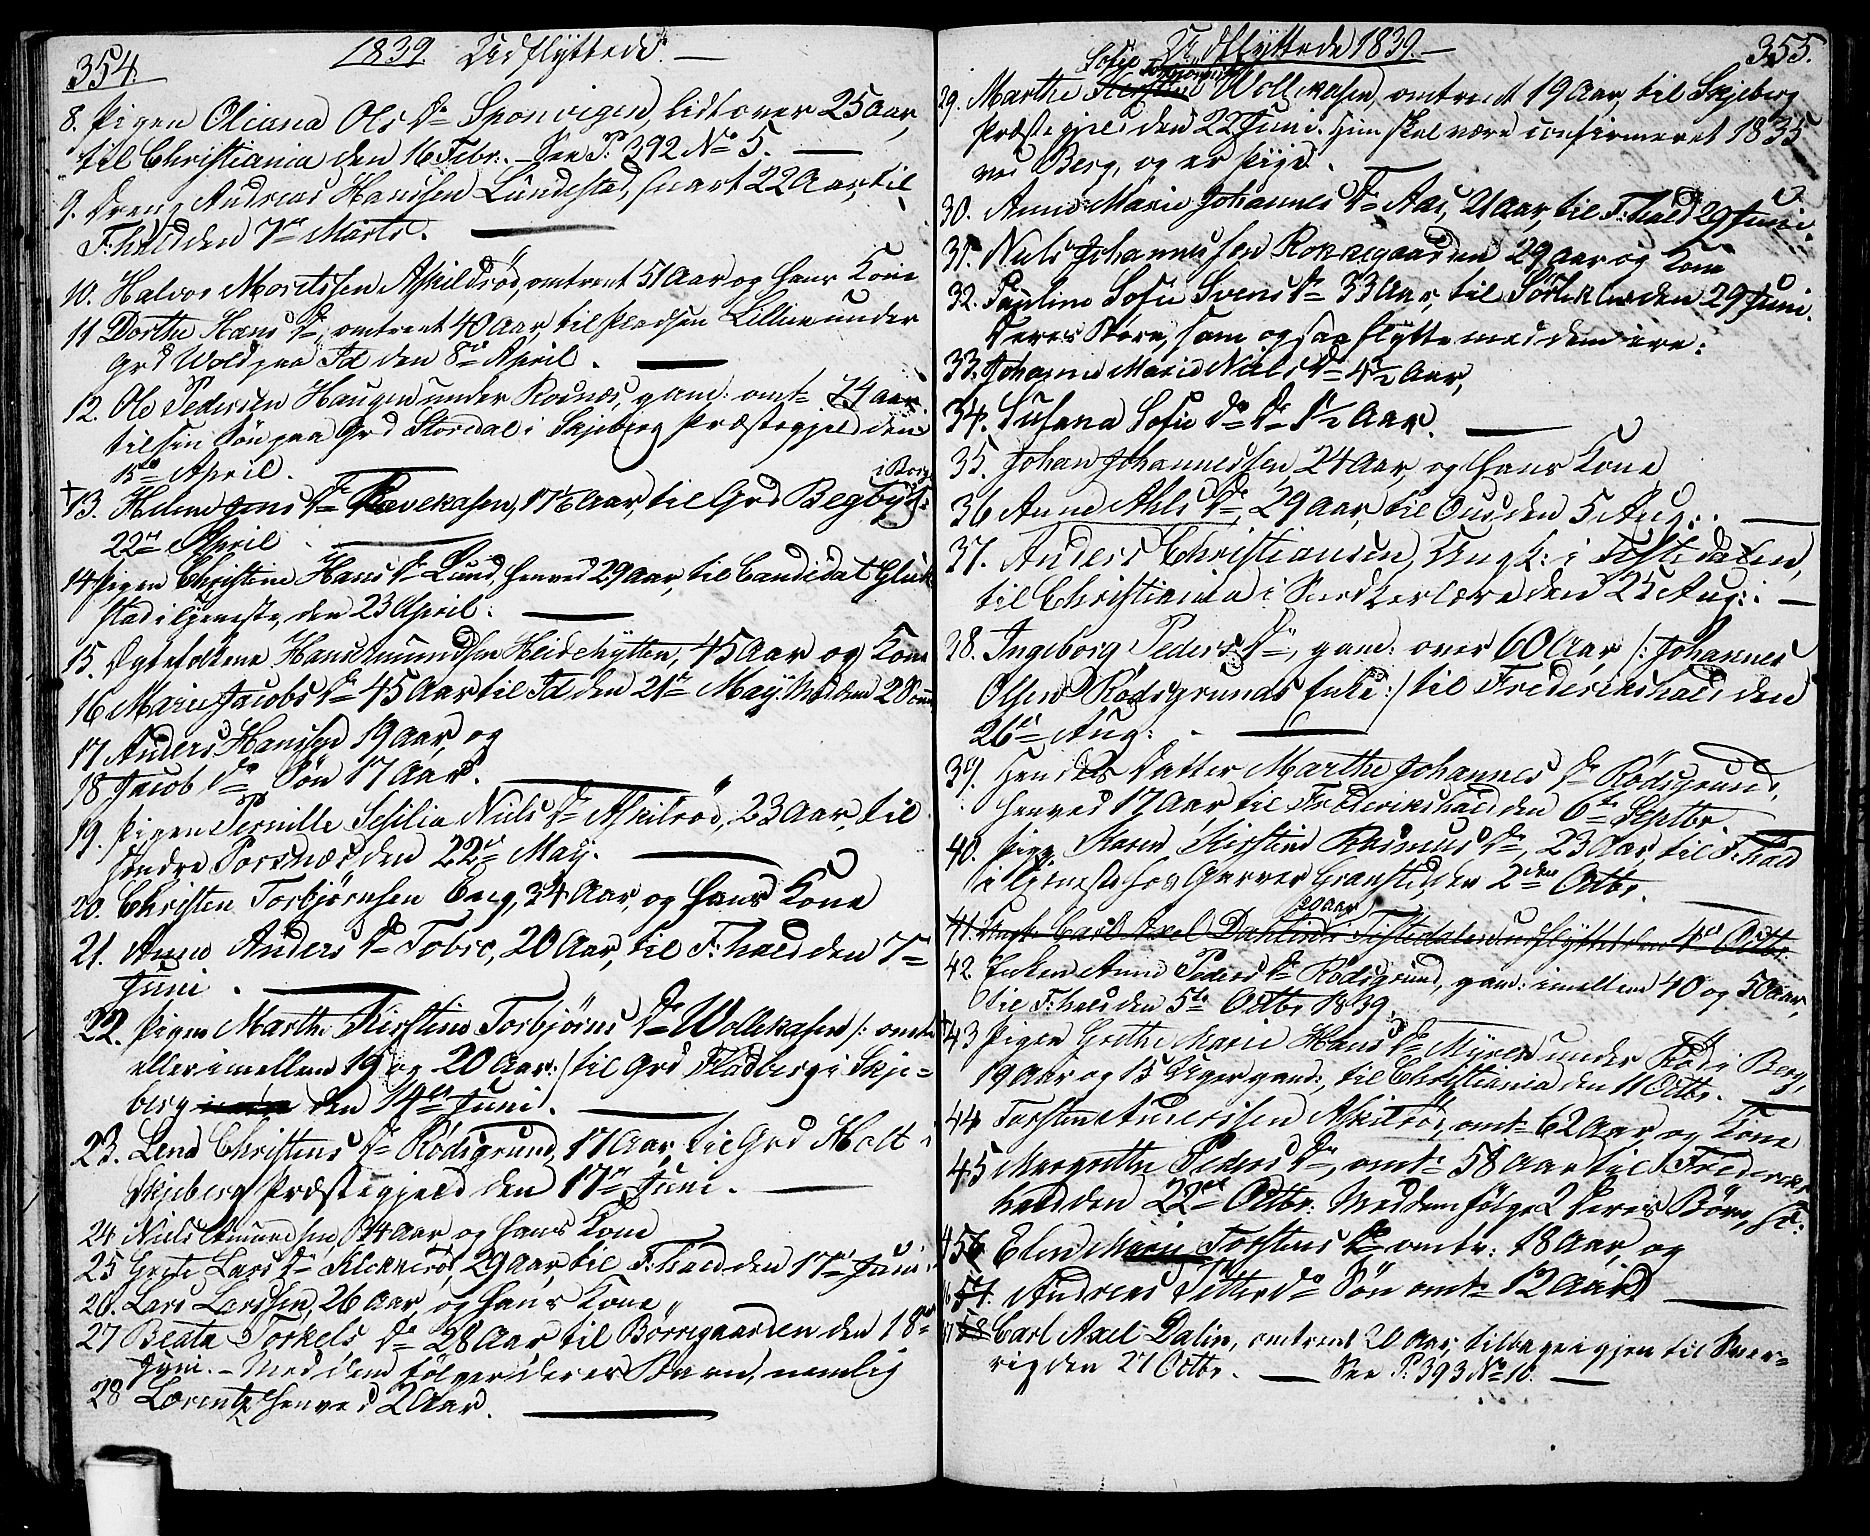 354.
1839. Udflyttede. —
8. Pigen Oliana Ols Dr Sponvigen, lidt over 25 Aar,
til Christiania den 16 Febr. – See P. 392 No 5. —
9. Dreng Andreas Hanssen Lundestad, snart 22 Aar, til
F:hald den 7de Marts. —
10. Halvor Moretssen Askildrød, omtrent 51 Aar og hans Kone
11 Dorthe Hans Dr, omtrent 40 Aar, til Pladsen Lillun under
Grd Wold paa Id den 8de April. —
12. Ole Pedersen Haugen under Rosnæs, gam: omt 74 Aar
til sin Søn paa Grd Stordal i Skjeberg Præstegjeld den
15de April. —
13. Helene Jens Dr Rævekasen, 17½ Aar, til Grd Begby i Borge
22de April —
14 Pigen Christine Hans Dr Lund, henved 29 Aar, til Candidat Glück
stad i tjeneste, den 23 April. —
15. Ægtefolkene Hans Amundsen Heidehytten, 45 Aar og Kone
16 Marie Jacobs Dr 45 Aar til Id den 21de May. Med dem 2 Sønn
17 Anders Hanssen 19 Aar, og
18 Jacob Do Søn 17 Aar. —
19. Pigen Pernille Sesilia Niels Dr Askilrød, 23 Aar, til
søndre Porsnæs, den 22de May. —
20. Christen Torbjørnsen Berg, 34 Aar, og hans Kone
21. Anne Anders Dr Tobie, 20 Aar, til F:hald den 7de
Juni. —
22. Pigen Marthe Kirstine Torbjørns Dr Wollekasen /: omt
eller imellem 19 og 20 Aar :/ til Grd Fladberg i Skje-
berg den 14de Juni. —
23. Lena Christens Dr Rødsgrund, 17 Aar, til Grd Holt i
Skjeberg Præstegjeld den 17de Juni. —
24 Niels Amundsen, 34 Aar, og hans Kone
25 Grete Lars Dr Klokkerød, 29 Aar, til F:hald den 17de Juni
26. Lars Larssen, 26 Aar, og hans Kone
27 Beata Torkels Dr 28 Aar til Börregaarden den 18de
Juni. – Med dem følger deres Barn, nemlig
28 Lorentz henved 2 Aar. —
Udflyttede 1839. —
355.
29. Marthe Sofie Torbjørns Wollekasen, omtrent 19 Aar, til Skjeberg
Præstegjeld den 22 Juni. Hun skal være confirmeret 1835
ved Berg, og er Pige.
30. Anne Marie Johannes Dr Aas, 21 Aar, til F:hald 29 Juni.
31. Niels Johannesen Rokkegaarden 29 Aar og Kone
32. Pauline Sofie Svens Dr 33 Aar, til den 29 Juni.
Deres Børn, som ogsaa flytte med dem ere:
33. Johanne Marie Niels Dr 4½ Aar,
34. Susana Sofie Do Dr 1½ Aar. —
35. Johan Johannessen, 24 Aar, og hans Kone
36 Anne Ahls Dr, 29 Aar, til Ous den 5 Aug. —
37. Anders Christiansen, Ungk: i Tistedalen,
til Christiania i Snedkerlære den 25 Aug: —
38. Ingeborg Peders Dr, gam: over 60 Aar /: Johannes
Olsen Rødsgrunds Enke :/ til Frederikshald den
26de Aug: —
39. Hendes Datter Marthe Johannes Dr Rødsgrund,
henved 17 Aar, til Frederikshald den 6te Septbr.
40. Pige Karen Kirstine Rasmus Dr, 23 Aar, til F:hald
i tjeneste hos Garver Granstid, den 2den Octbr. —
41. Ungk. Carl Axel Dahlin 20 Aar Tistedalen udflyttet den 4de Octbr.
42. Enken Anne Peders Dr Rødsgrund, gam: imellem 40 og 50 Aar,
til F:hald den 5te Octbr 1839.
43 Pigen Grethe Marie Hans Dr Myren under Rød i Berg,
19 Aar og 15 Uger gam:, til Christiania den 11 Octbr. —
44 Torsten Anderssen Askilrød, omt 62 Aar, og Kone
45 Margrethe Peders Dr, omt 58 Aar til Frederiks
hald den 22de Octbr: Med dem følge 2 deres Børn, so:
456 Elen Marie Torstens Dr omtr: 18 Aar, og
57. Andreas Petter Do Søn omt 12 Aar. —
58 Carl Axel Dalin, omtrent 20 Aar, tilbage igjen til Sver-
rig den 27 Octbr. — See P. 393 No 10. —